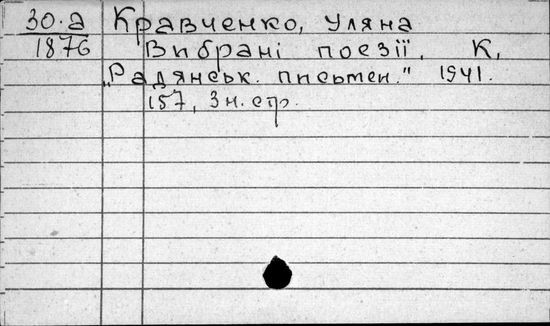 30.а Кравченко, Уляна
1876 Вибрані поезії. К,
„Радянськ. письмен." 1941.
157, 3 н. стр.